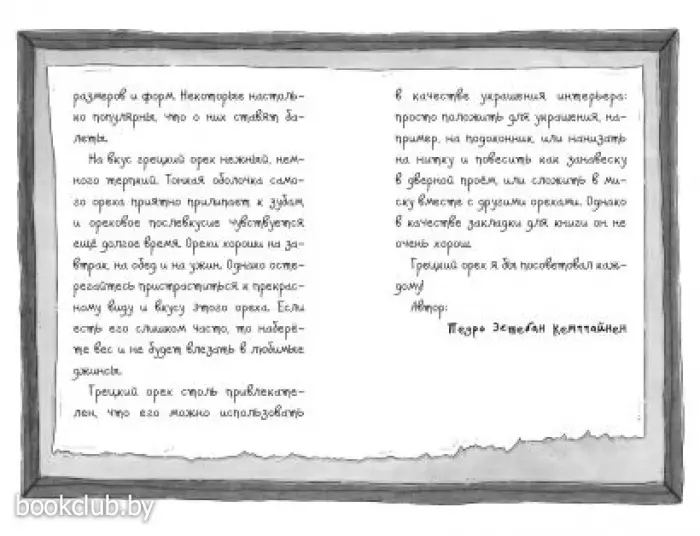 размеров и форм. Некоторые настоль-
ко популярны, что о них ставят ба-
леты.
На вкус грецкий орех нежный, нем-
ного терпкий. Тонкая оболочка само-
го ореха приятно прилипает к зубам,
и ореховое послевкусие чувствуется
ещё долгое время. Орехи хороши на за-
втрак, на обед и на ужин. Однако осте-
регайтесь пристраститься к прекрас-
ному виду и вкусу этого ореха. Если
есть его слишком часто, то наберё-
те вес и не будет влезать в любимые
джинсы.
Грецкий орех столь привлекате-
лен, что его можно использовать
в качестве украшения интерьера:
просто положить для украшения, на-
пример, на подоконник, или нанизать
на нитку и повесить как занавеску
в дверной проём, или сложить в ми-
ску вместе с другими орехами. Однако
в качестве закладки для книги он не
очень хорош.
Грецкий орех я бы посоветовал каж-
дому!
Автор:
Педро Эстебан Кемппайнен
bookclub.by